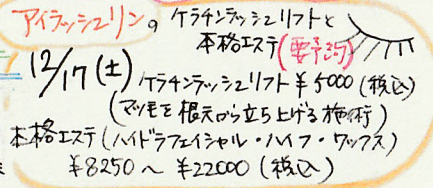 アイラッシュリンの ケラチンラッシュリフトと
本格エステ(要予約)
12/17(土)
ケラチンラッシュリフト ¥5000(税込)
(マツモを根元から立ち上げる施術)
本格エステ(ハイドラフェイシャル・ハイフ・ワックス)
¥8250〜¥22000(税込)